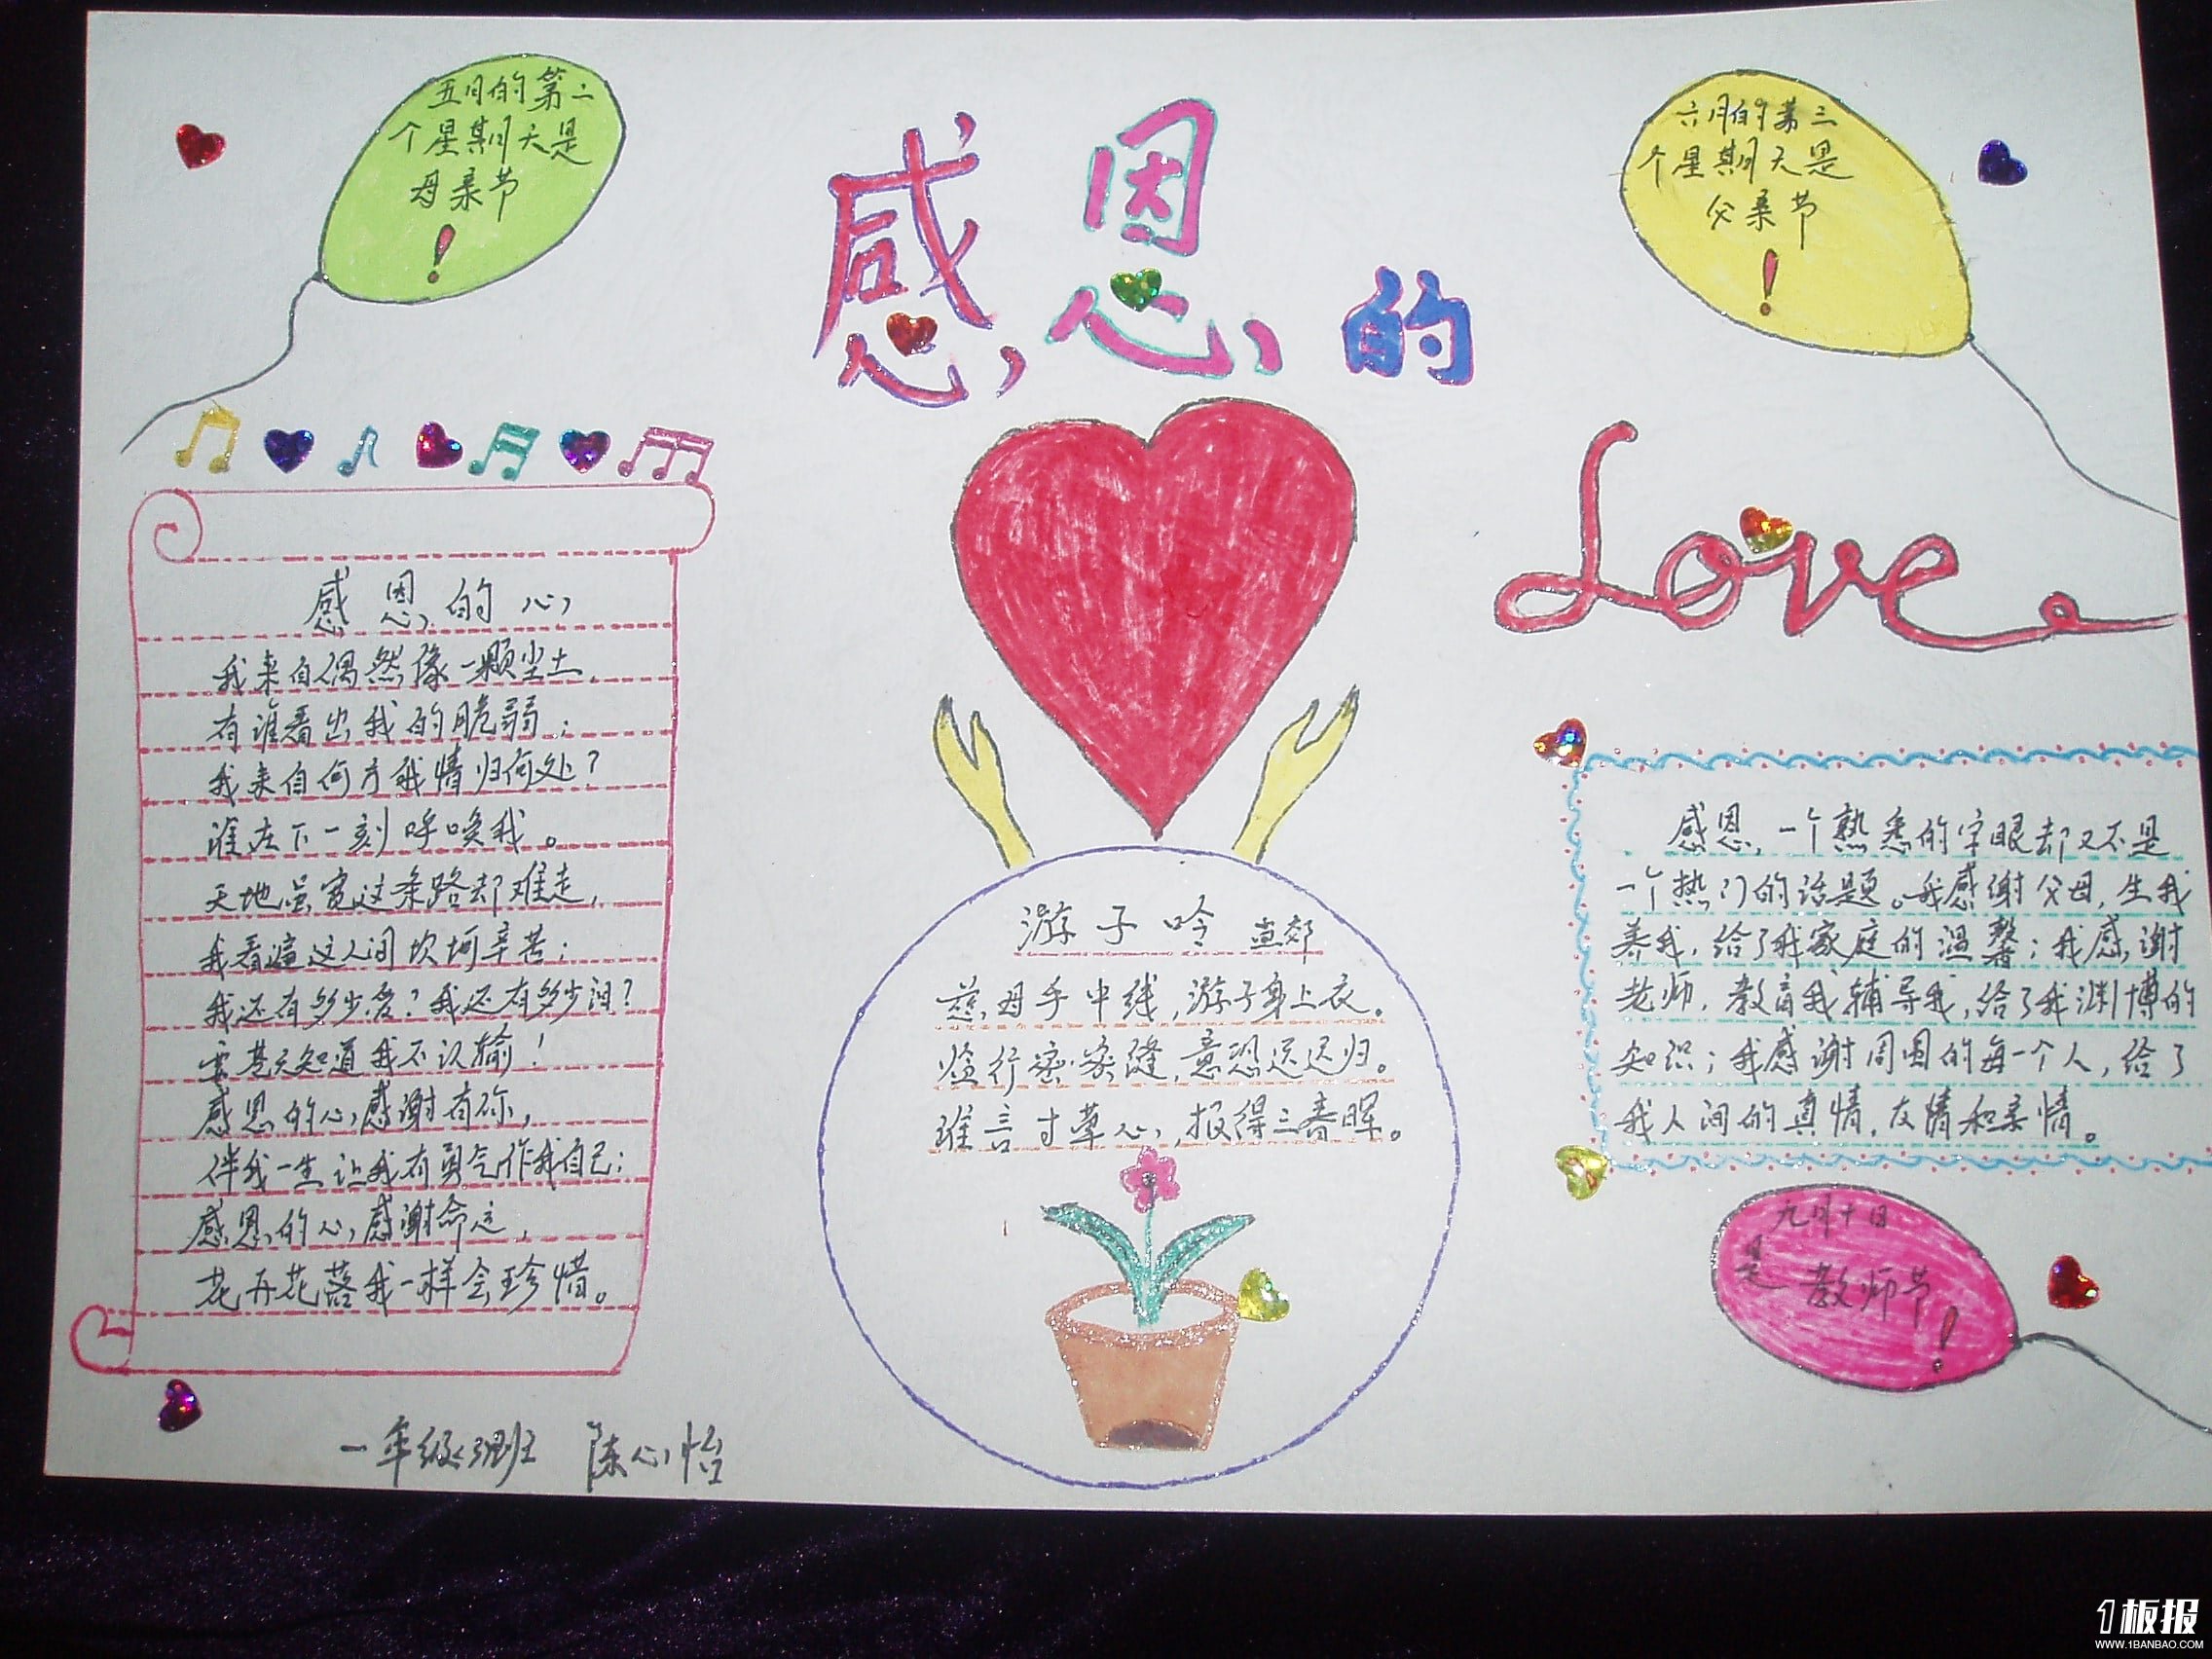 五月的第二
个星期天是
母亲节
!
感恩的
六月的第三
个星期天是
父亲节
!
Love
感恩的心
我来自偶然像一颗尘土,
有谁看出我的脆弱;
我来自何方我情归何处?
谁在下一刻呼唤我。
天地虽宽这条路却难走,
我看遍这人间坎坷辛苦;
我还有多少爱?我还有多少泪?
要苍天知道我不认输!
感恩的心,感谢有你,
伴我一生让我有勇气作我自己;
感恩的心,感谢命运,
花开花落我一样会珍惜。
一年级<3>班 陈心怡
游子吟 孟郊
慈母手中线,游子身上衣。
临行密密缝,意恐迟迟归。
谁言寸草心,报得三春晖。
感恩,一个熟悉的字眼却又不是
一个热门的话题。我感谢父母,生我
养我,给了我家庭的温馨;我感谢
老师,教育我辅导我,给了我渊博的
知识;我感谢周围的每一个人,给了
我人间的真情,友情和亲情。
九月十日
是教师节
!
1板报
WWW.1BANBAO.COM